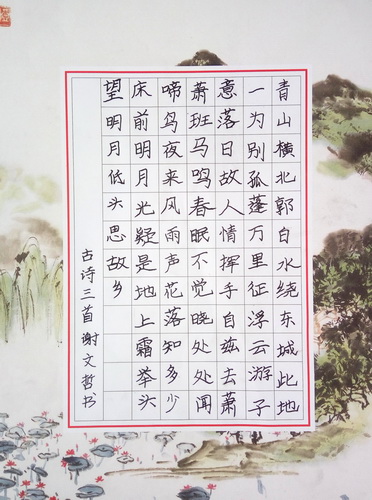 青山横北郭白水绕东城此地
一为别孤蓬万里征浮云游子
意落日故人情挥手自兹去萧
萧班马鸣春眠不觉晓处处闻
啼鸟夜来风雨声花落知多少
床前明月光疑是地上霜举头
望明月低头思故乡
古诗三首谢文哲书